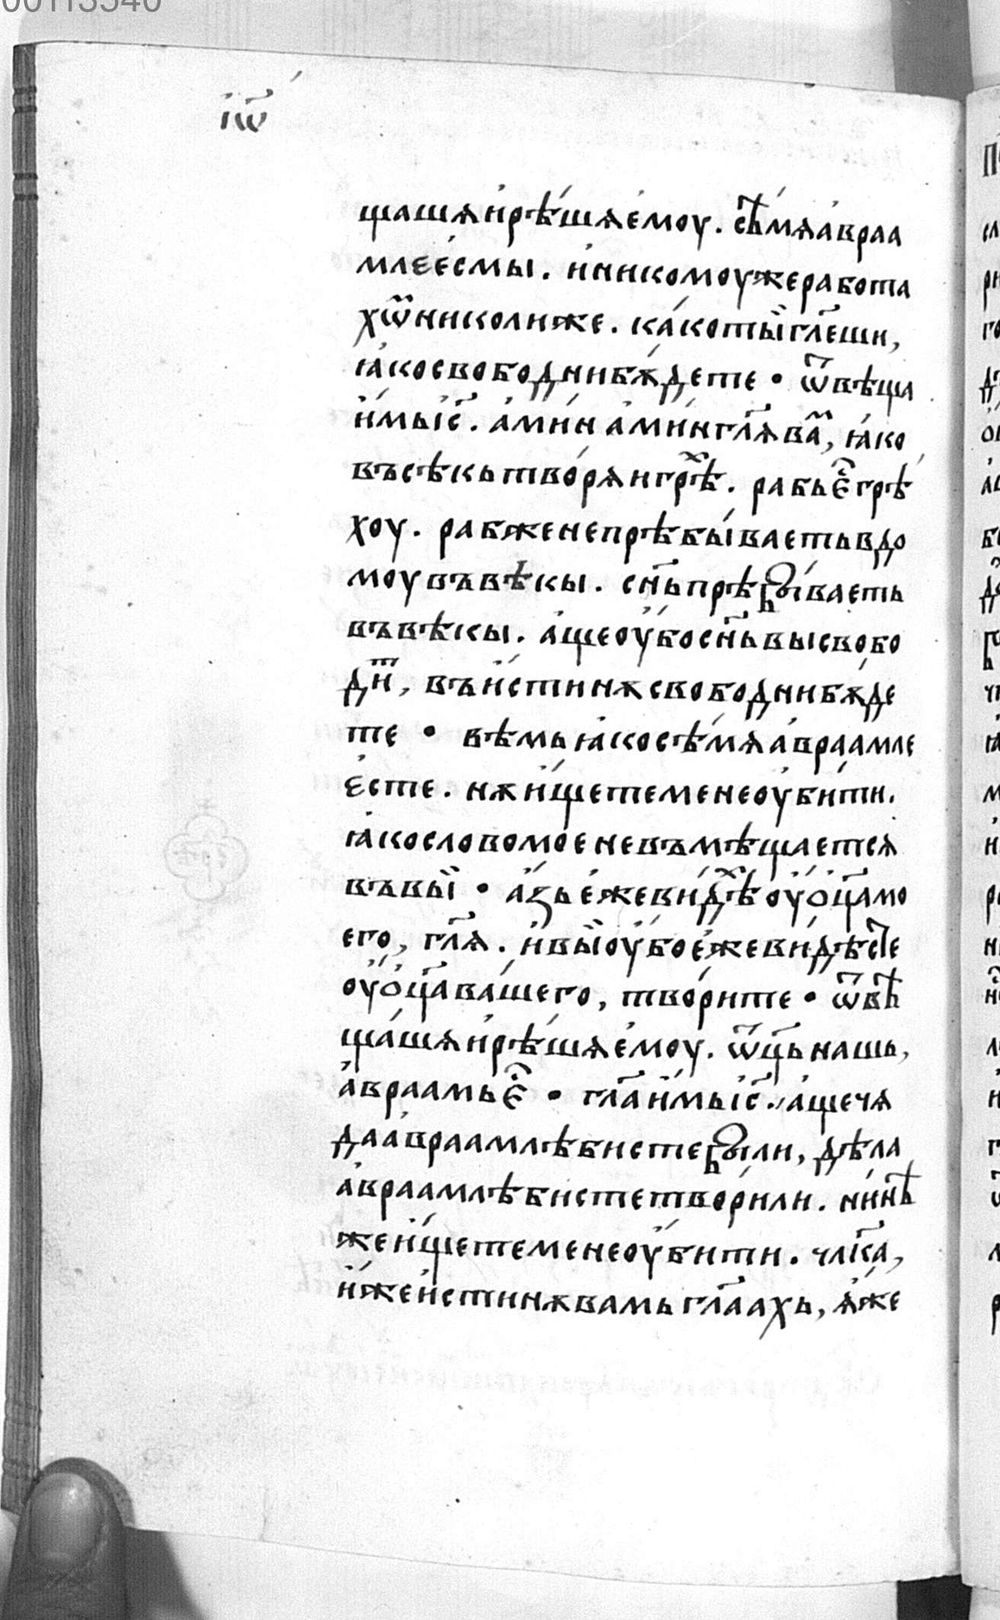 00113540
і҆ѡ҃
щашѧ и҆рѣ́шѧ є҆моу. сѣ́мѧ а҆враа
млее҆смы. и҆ никомоуже работа
хѡⷨ николиже. ка́ко ты̀ гл҃еши,
ꙗ҆ко свобо́дни бѫ́дете • ѿвѣща
и҆мь і҆с҃. а҆ми́н а҆ми́н гл҃ѧ ваⷨ, ꙗ҆ко
въсѣкь творѧ́и грѣⷯ. рабь є҆ⷭ҇ грѣ
хоу. раб же не прѣбы́ваеть в до
моу въвѣкы. сн҃ь прѣбы́ваеть
въвѣкы. а҆ще оу҆бо сн҃ь вы свобо
диⷮ, въи҆́стинѫ свобо́дни бѫ́де
те • вѣмь ꙗ҆ко сѣ́мѧ а҆враамле
є҆сте. нѫ и҆́щете мене оу҆би́ти.
ꙗ҆ко слово мое не въмѣщаетсѧ
въ вы̀ • а҆зь є҆же ви́дѣⷯ оу҆ о҆ц҃а мо
его, гл҃ѧ. и҆ вы̀ оу҆бо є҆́же ви́дѣсте
оу҆ о҆ц҃а ва́шего, твори́те • ѿвѣ
ща́шѧ и҆рѣ́шѧ є҆моу. ѿц҃ь нашь,
а҆враамь є҆ⷭ҇ • гл҃а и҆мь і҆с҃. а҆ще чѧ
да а҆враамлѣ бисте были, дѣ́ла
а҆враамлѣ бисте твори́ли. нинѣ
же и҆́щете мене оу҆би́ти. чл҃ка,
и҆́же и҆стинѫ вамь гл҃аахь, ѧ҆́же